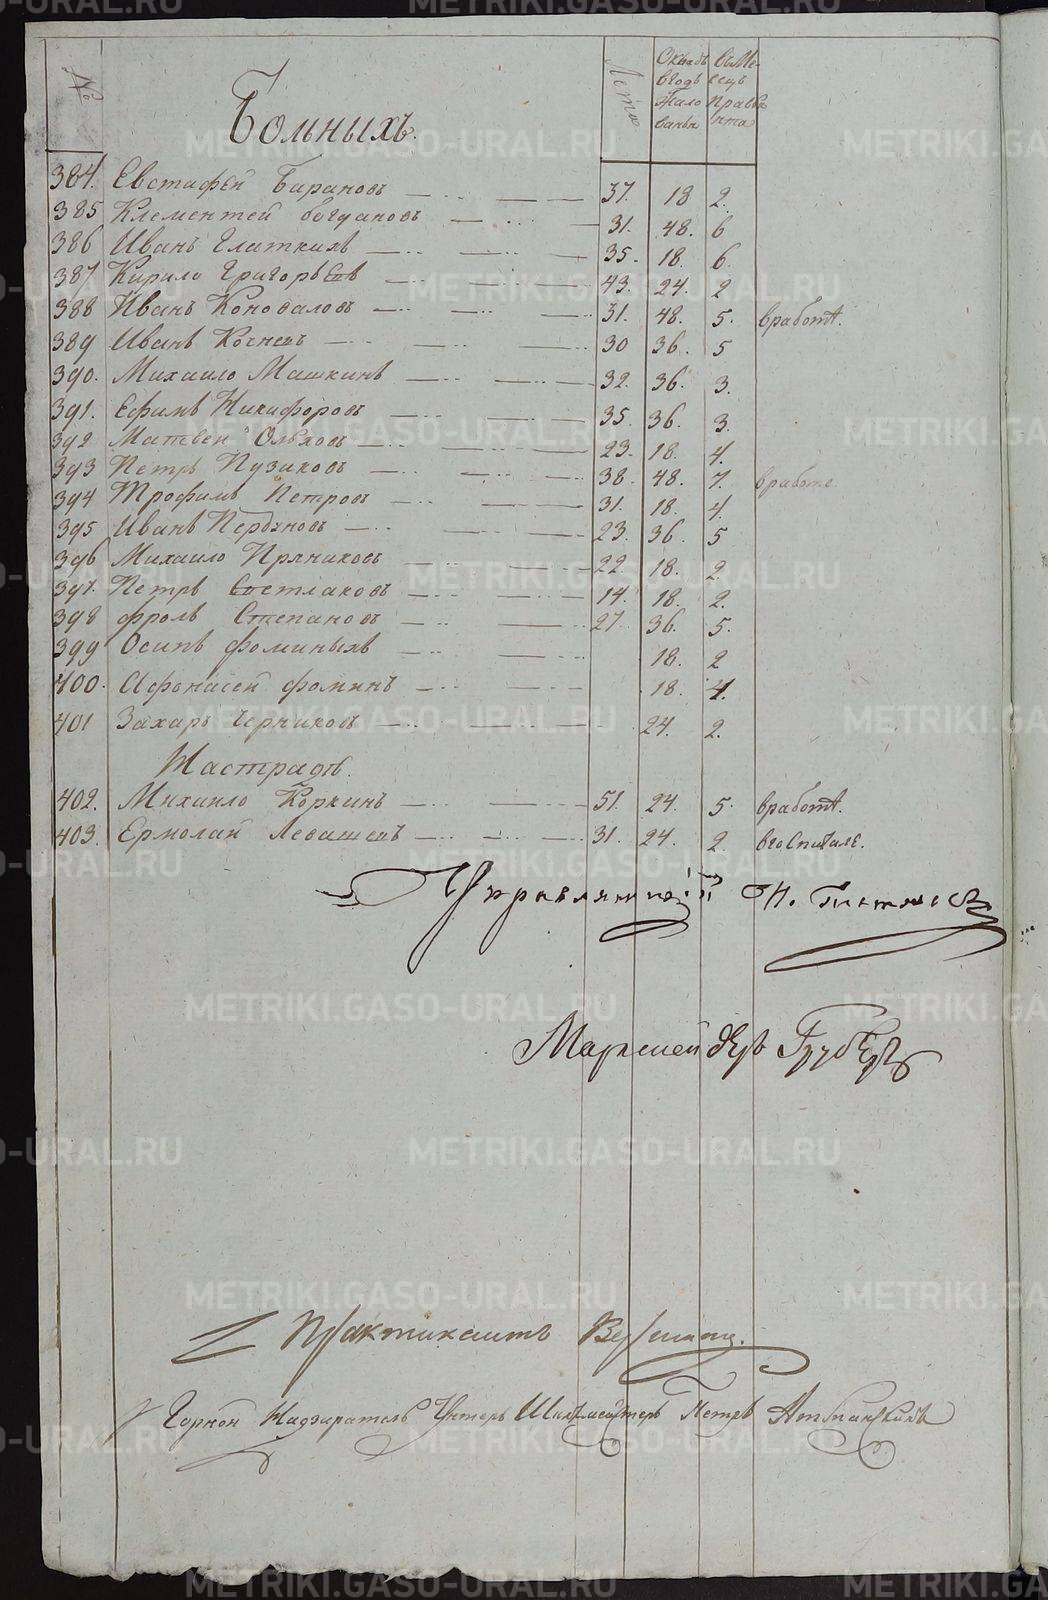 №
Больныхъ.
Лета
Окладъ вгодъ жалованья
въ месецъ правианта
384. Евстафей Барановъ 37. 18 2.
385 Клементей богдановъ 31. 48. 6
386 Иванъ Глаткихъ 35. 18. 6.
387. Кирило Григорьевъ 43. 24. 2
388 Иванъ Коноваловъ 31. 48. 5. вработѣ.
389 Иванъ Кочневъ 30 36. 5
390. Михаило Машкинъ 32. 36. 3.
391. Ефимъ Никифоровъ 35. 36. 3.
392 Матвей Ольховъ 23. 18. 4.
393 Петръ Пузиковъ 38. 48. 7. вработе
394 Трофимъ Петровъ 31. 18. 4.
395 Иванъ 23. 36. 5
396 Михаило Пряниковъ 22. 18. 2.
397. Петръ Светлаковъ 14. 18. 2.
398 фролъ Степановъ 27 36. 5.
399 Осипъ фоминыхъ 18. 2
400. Афонасей фоминъ 18. 4.
401 Захаръ Черниковъ 24. 2.
402. Михаило Коркинъ 51. 24. 5. вработѣ.
403. Ермолай Левашевъ 31. 24. 2. вгоспитале.
Управляющей
Маркшейдеръ Груберъ
Практикантъ
Горной Надзиратель Унтеръ Шихтмейстеръ Петръ
METRIKI.GASO-URAL.RU